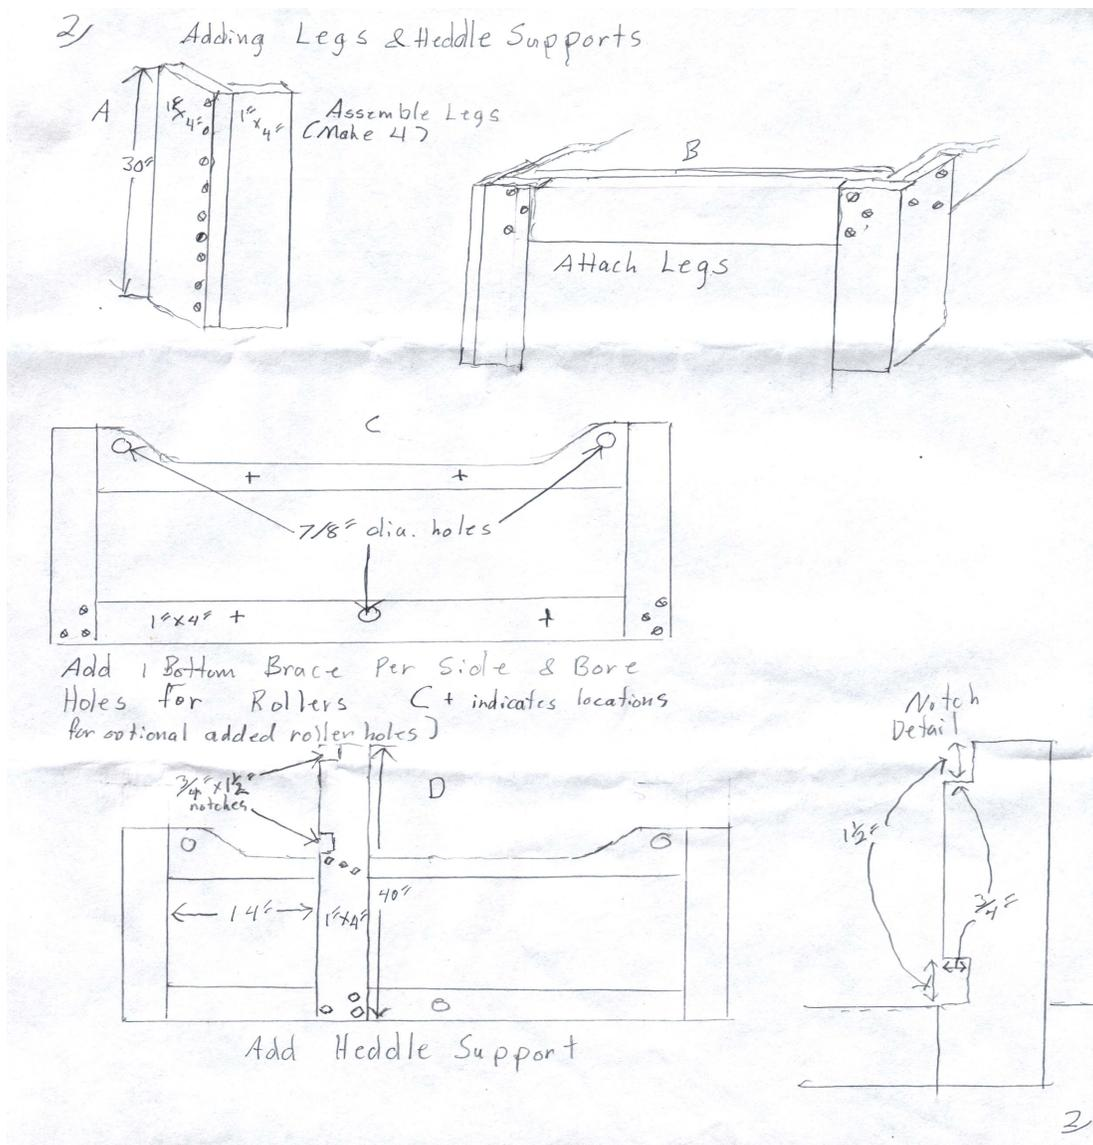 2)
Adding Legs & Heddle Supports
A
1" x 4"
1" x 4"
30"
Assemble Legs
(Make 4)
B
Attach Legs
C
7/8" dia. holes
1" x 4"
Add 1 Bottom Brace Per Side & Bore
Holes for Rollers (+ indicates locations
for optional added roller holes)
Notch
Detail
3/4" x 1 1/2"
notches
D
1 1/2"
40"
14"
1" x 4"
3/4"
Add Heddle Support
2